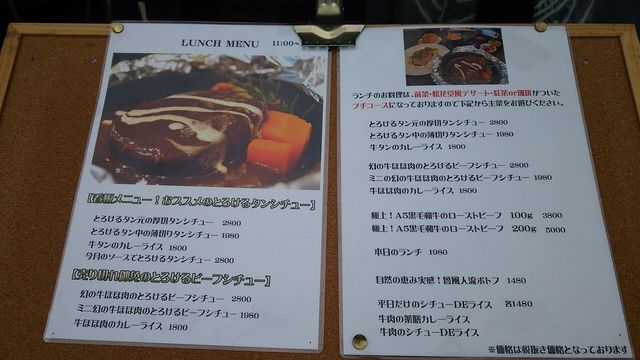 LUNCH MENU 11:00~
【看板メニュー！おススメのとろけるタンシチュー】
とろけるタン元の厚切タンシチュー 2800
とろけるタン中の薄切りタンシチュー 1980
牛タンのカレーライス 1800
今月のソースでとろけるタンシチュー 2800
【売り切れ御免のとろけるビーフシチュー】
幻の牛ほほ肉のとろけるビーフシチュー 2800
ミニ幻の牛ほほ肉のとろけるビーフシチュー 1980
牛ほほ肉のカレーライス 1800
ランチのお料理は、前菜・松花堂風デザート・紅茶or珈琲がついた
プチコースになっておりますので下記から主菜をお選びください。
とろけるタン元の厚切タンシチュー 2800
とろけるタン中の薄切りタンシチュー 1980
牛タンのカレーライス 1800
幻の牛ほほ肉のとろけるビーフシチュー 2800
ミニの幻の牛ほほ肉のとろけるビーフシチュー 1980
牛ほほ肉のカレーライス 1800
極上！A5黒毛和牛のローストビーフ 100g 3800
極上！A5黒毛和牛のローストビーフ 200g 5000
本日のランチ 1980
自然の恵み実感！魯風人流ポトフ 1480
平日だけのシチューDEライス 各1480
牛肉の薬膳カレーライス
牛肉のシチューDEライス
※価格は税抜き価格となっております